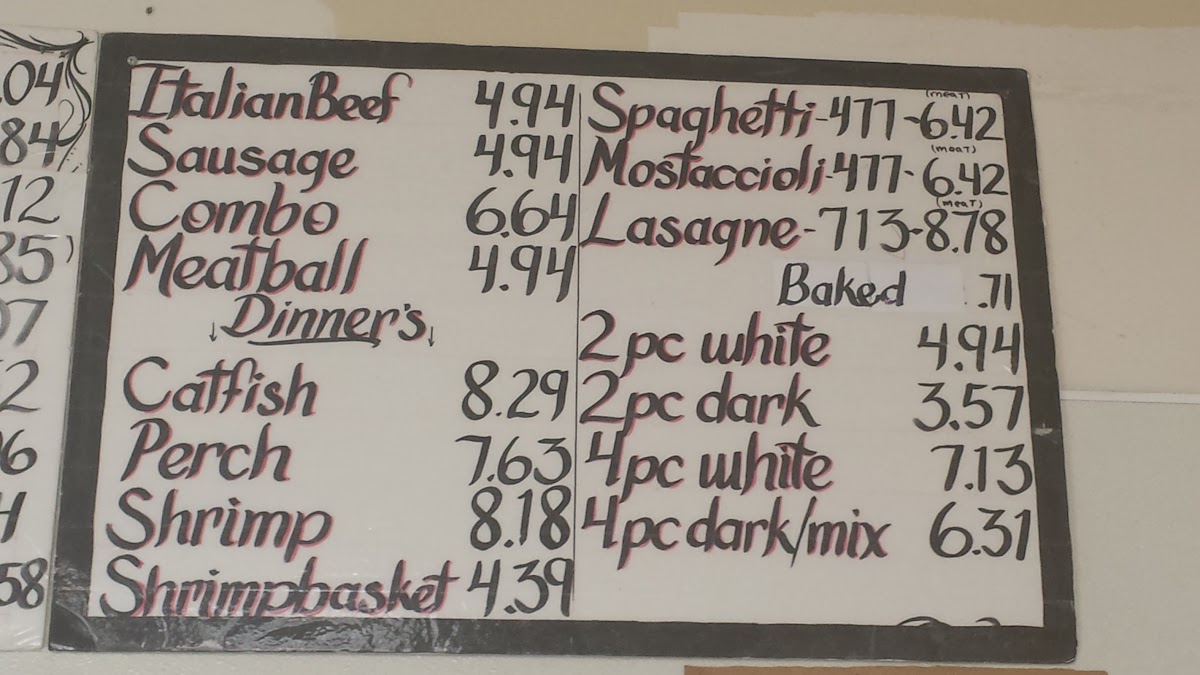 .04
84
12
85
07
2
6
4
58
ItalianBeef 4.94
Sausage 4.94
Combo 6.64
Meatball 4.94
↓Dinner's↓
Catfish 8.29
Perch 7.63
Shrimp 8.18
Shrimpbasket 4.39
(meat)
Spaghetti-477-6.42
(meat)
Mostaccioli-477-6.42
(meat)
Lasagne-713-8.78
Baked .71
2pc white 4.94
2pc dark 3.57
4pc white 7.13
4pc dark/mix 6.31